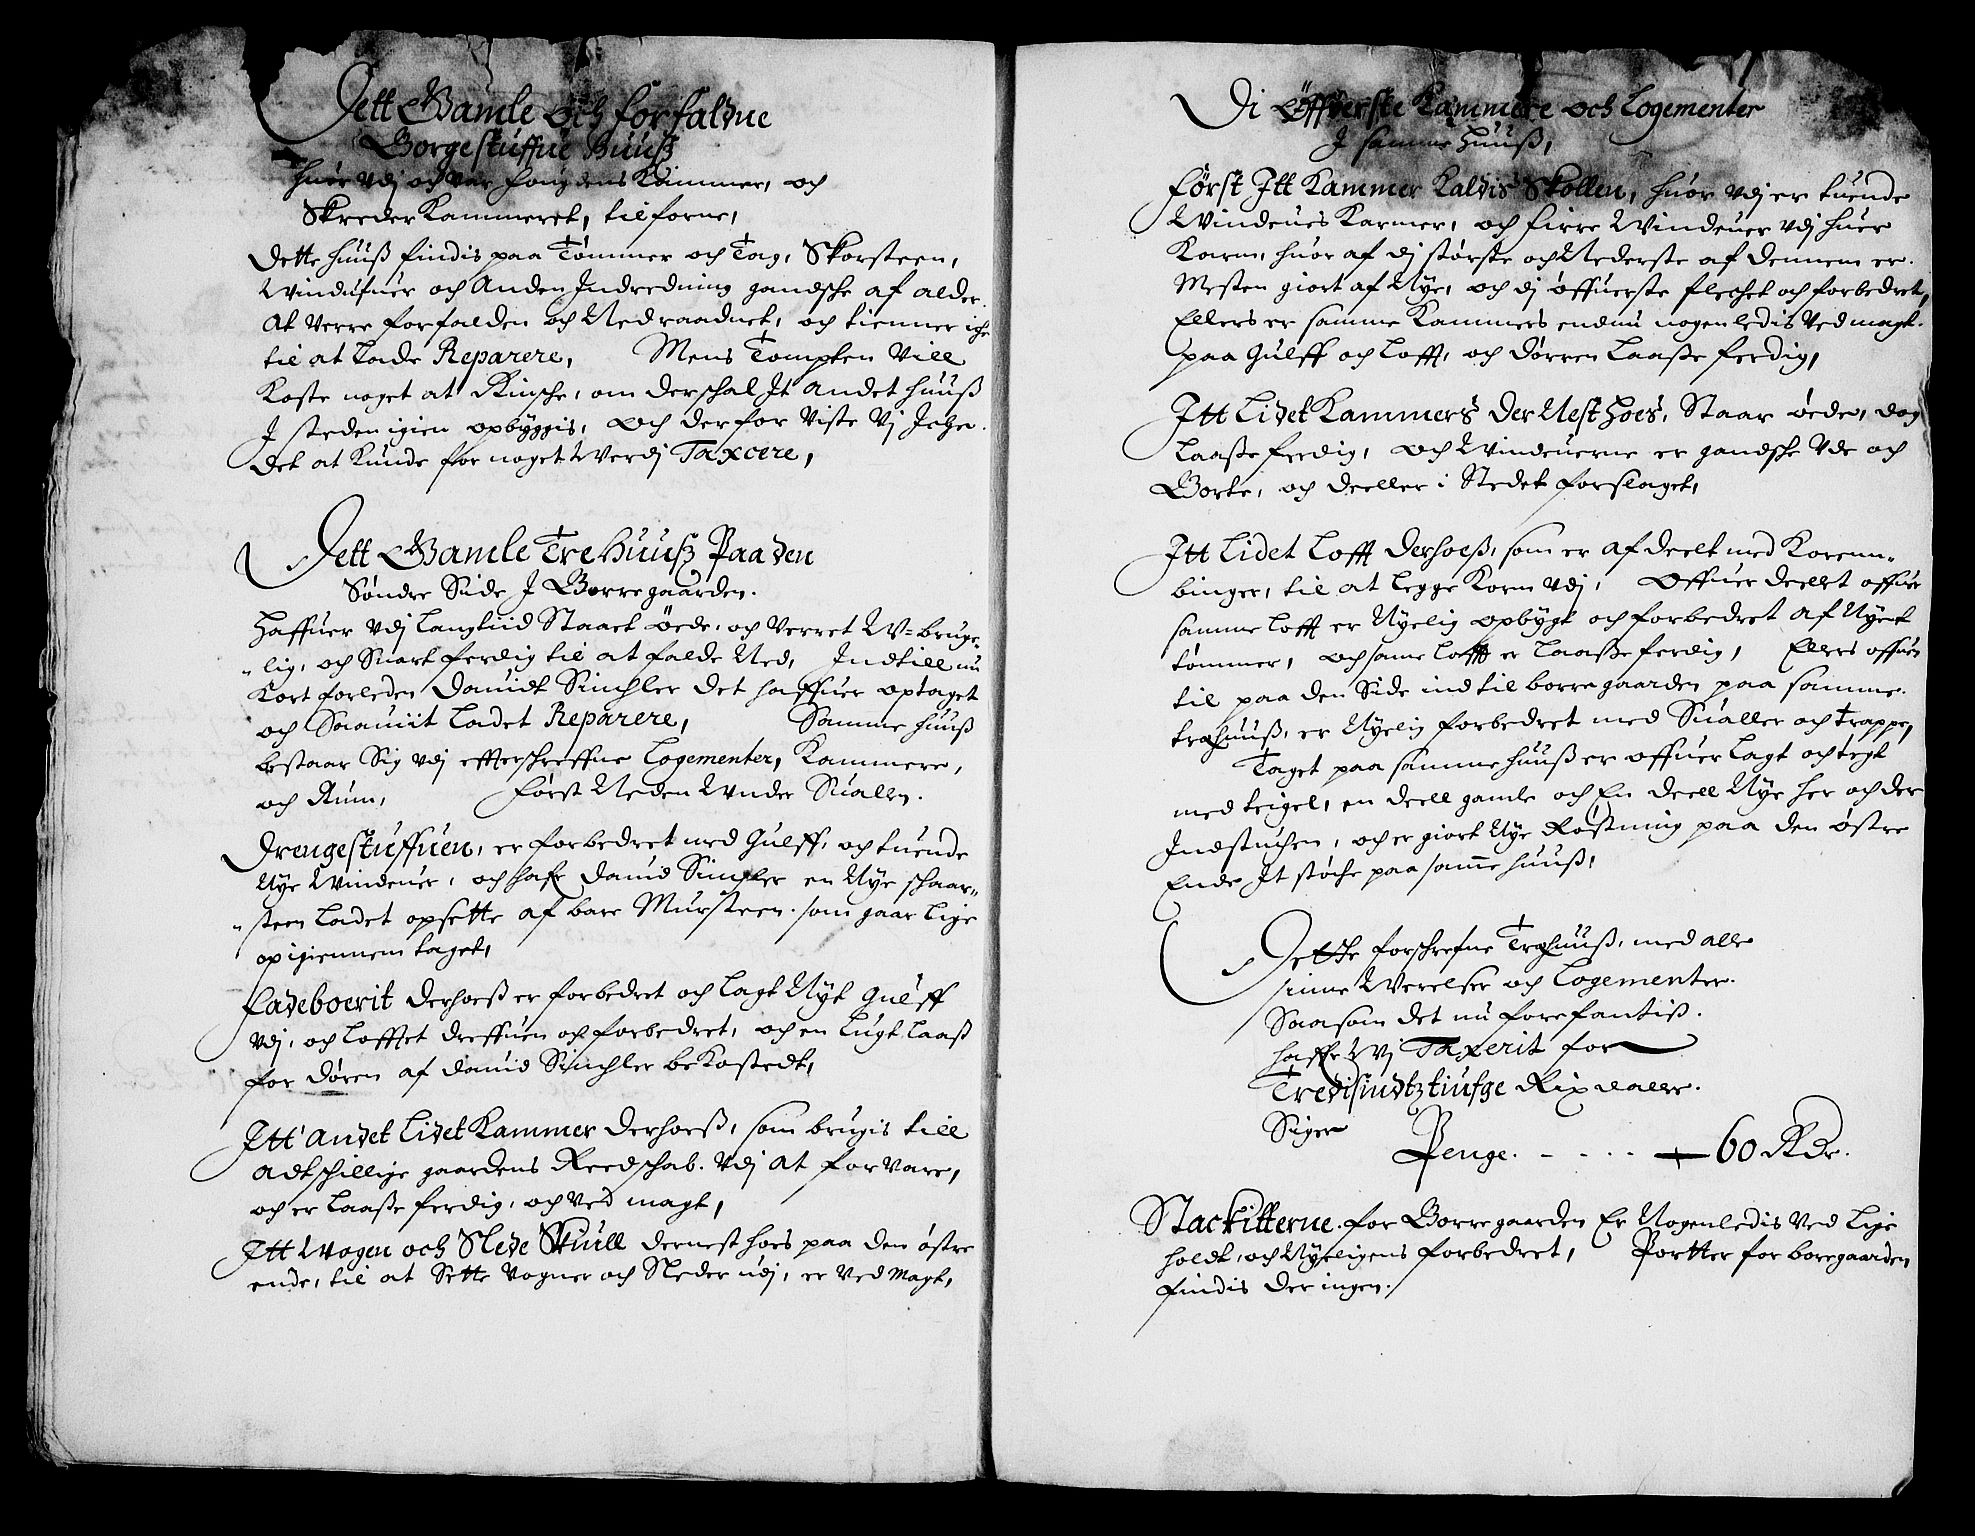 Dett Gamle och forfaldne
Borgestuffue Huusz
Huor vdj och var fougdens Kammer, och
Skreder Kammeret, tilforne,
Dette huuß findis paa Tømmer och Tag, Skorsteen,
Winduer och Anden Indredning gandsche af alder
At verre forfalden och Nedraadnet, och tienner iche
til at lade Reparere, Mens Tompten vill
Koste noget at Rinsche, om der schal It andet huuß
I steden igien opbyggis, Och derfor viste vj Iche
det at kunde for noget Werdj Taxere,
Dett Gamle Tre Huusz Paa den
Søndre Side I Borregaarden.
Haffuer vdj langtiid Staaet öede, och verret W=bruge-
"lig, och Snart ferdig til at falde Ned, Indtill nu
Kort forleden Dauidt Sinchler det haffuer optaget
och Saauiit ladet Reparere, Samme huuß
bestaar Sig vdj effterschreffne Logementer, Kammere,
och Rum, Først Neden Vnder Sualen.
Drengestuffuen, er forbedret med Gulff, och tuende
Nye Winduer, och hafr Dauid Sincler en Nye schaar=
"steen ladet opsette af bare Mursteen, som gaar lige
op igiennem taget,
Fadeboerit derhoeß er forbedret och lagt Nyt Gulff
vdj, och lofftet dreffuen och forbedret, och en Lugt laaß
for døren af Dauid Sinchler bekostedt,
Itt andet lidet Kammer derhoeß, som brugis till
adtschillige gaardens Reedschab vdj at forvare,
och er laaße ferdig, och ved magt,
Itt Wogen och Slede Skiull dernest hoes paa den østre
ende, til at Sette vogner och Sleder udj, er ved Magt,
Di Öffuerste Kammere och Logementer
I samme huuß,
Først Itt Kammer Kaldis Skollen, huor vdj er tuende
Windeues Karmer, och fiire Windeuer vdj huer
Karm, huor af dj største och Nederste af dennem er
Mesten giort af Nye, och dj öffuerste flechet och forbedret,
Ellers er samme Kammers endnu nogenledis ved magt
paa Gulff och loff, och dørren laaße ferdig,
Itt lidet Kammers der Nest hoes, Staar öede, dog
laaße ferdig, och Windeuerne er gandsche vde och
Borte, och deeller i Stedet forslaget,
Itt lidet Lofft derhoeß, som er afdeelt med Korenn=
binger, til at legge Korn vdj, Offuer deellet offuer
samme lofft er Nyelig opbygt och forbedret af Nyet
tømmer, och same lofft er laaße ferdig, Ellers offuen
til paa den Side ind til borregaarden paa samme
træhuuß, er Nyelig forbedret med Sualler och trapper,
Taget paa samme huuß er offuer lagt och tegt
med teigel, en deell gamle och En deell Nye her och der
Indstuchen, och er giort Nye Røstning paa den østre
Ende It støche paa samme huuß,
Dette forschrefne Træhuuß, med alle
sinne Werelser och Logementer
Saasom det nu forefantiß.
haffr Wj Taxerit for
Tredisindtztiufge Rixdaller.
Siger
Penge. - - - - - 60 Rdr.
Stackitterne for Borregaarden Er Nogenledis ved lige
holdt, och Nyeligens forbedret, Portter for boregaarden
findis der ingen.